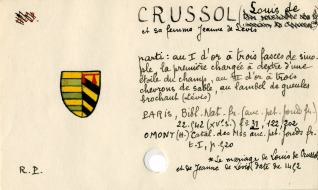 CRUSSOL (Louis de
et sa femme Jeanne de Lévis
parti : au I d'or à trois fasces de sino-
ple la première chargée à dextre d'une
étoile du champ, au II d'or à trois
chevrons de sable, au lambel de gueules
brochant (Lévis)
PARIS, Bibl. Nat. fr. (anc. pet. fonds fr.
22.942 (XVe s.) f° 21, 122, 202
OMONT (H.) Catal. des Mss anc. pet. fonds fr.
t. I, p. 520
* Le mariage de Louis de Crussol
et de Jeanne de Lévis date de 1452
R.P.